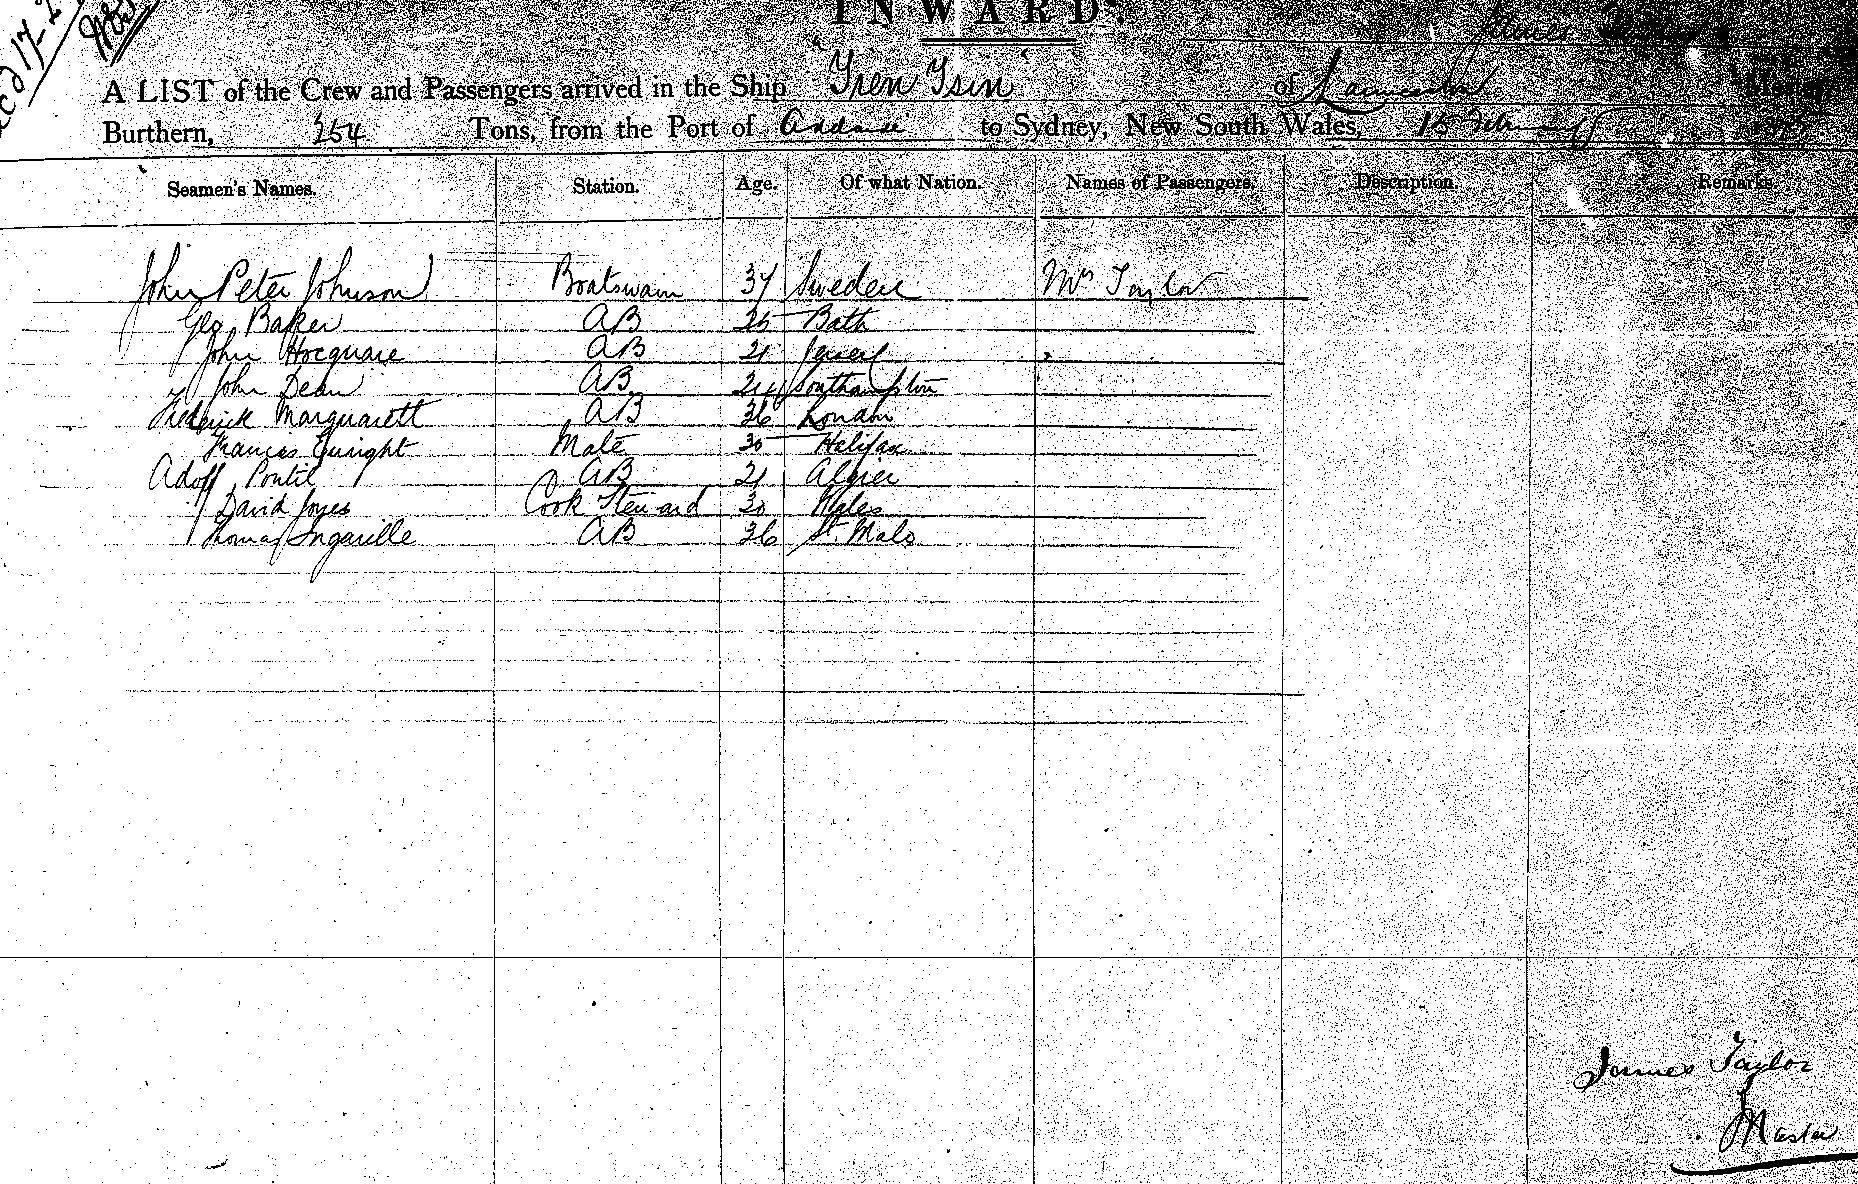 INWARD.
A LIST of the Crew and Passengers arrived in the Ship "Tien Tsin" of Launceston
Burthern, 254 Tons, from the Port of Adelaide to Sydney, New South Wales, 15 February
Seamen's Names. Station. Age. Of what Nation. Names of Passengers. Description. Remarks.
John Peter Johnson Boatswain 37 Sweden Mrs Taylor
Geo. Baker AB 25 Bath
John Hocquare AB 21 Jersey
John Dean AB 24 Southampton
Frederick Marquardt AB 36 London
Frances Enright Mate 30 Halifax
Adolf Pontil AB 21 Algier
David Joyes Cook Steward 30 Wales
Thomas Ingarille AB 36 St. Malo
James Taylor
Master